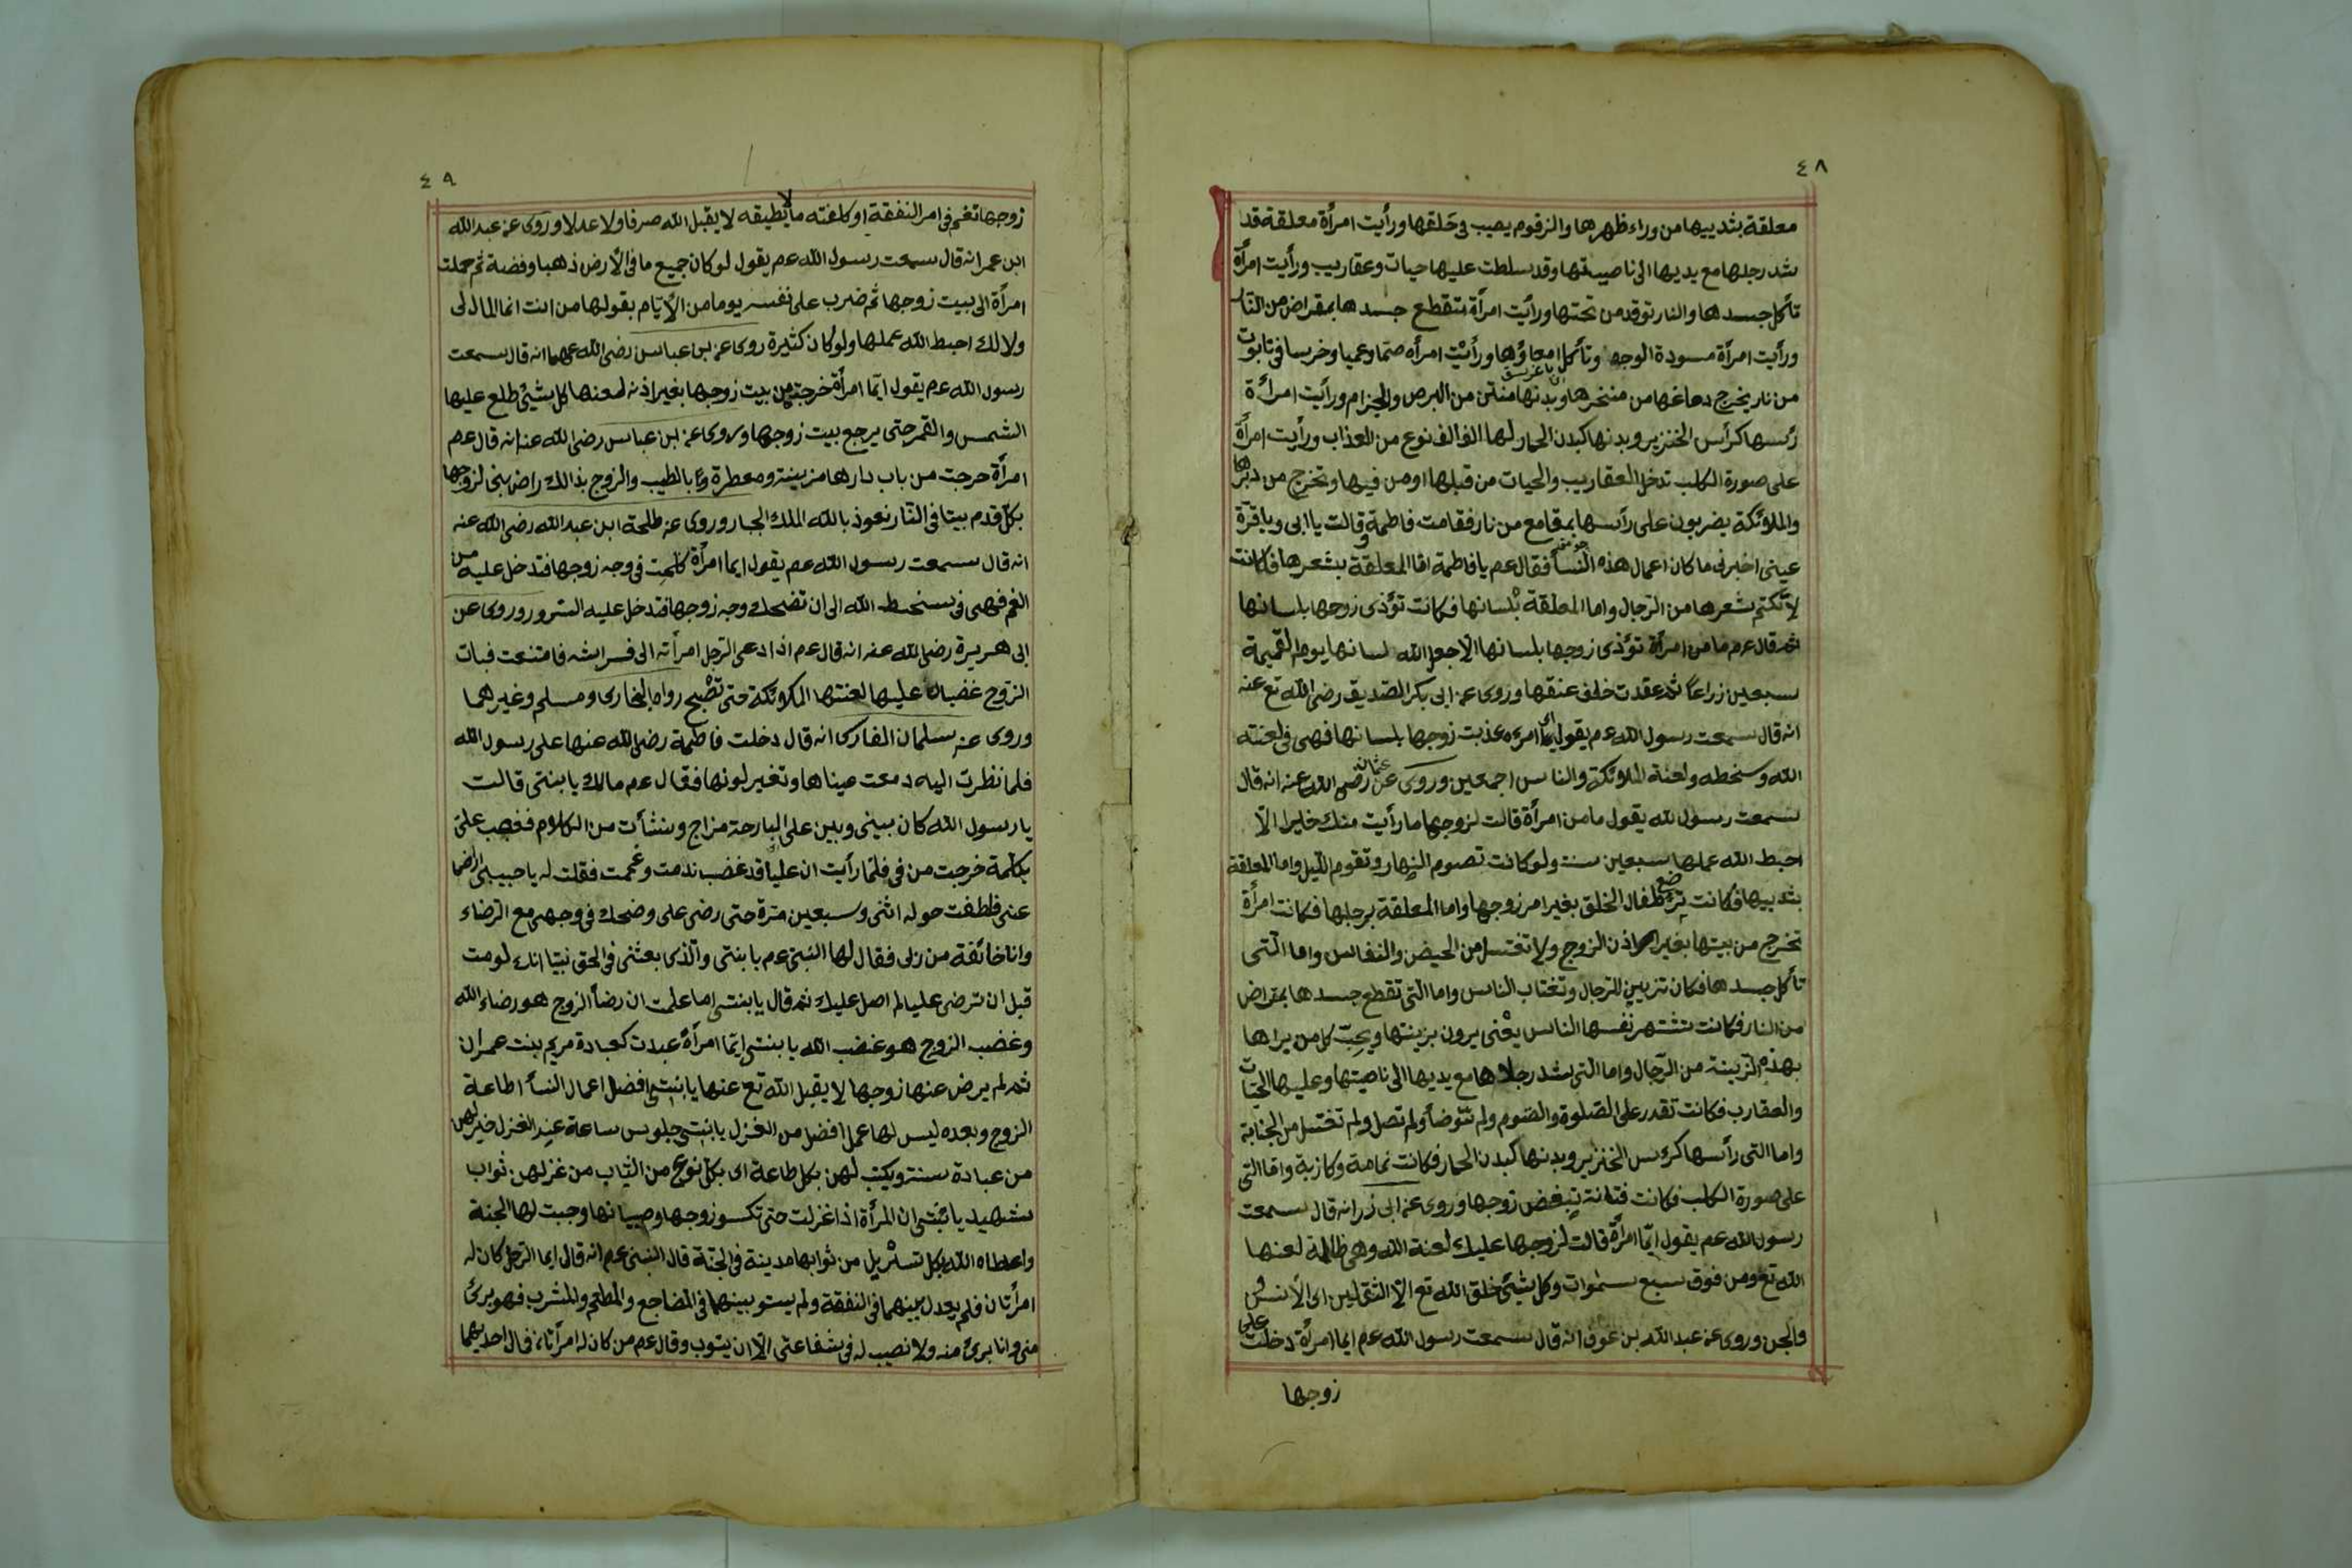 ٤٨
معلقة بثدييها من وراء ظهرها والزقوم يصب فى حلقها ورأيت امرأة معلقة قد
شد رجلها مع يديها الى ناصيتها وقد سلطت عليها حيات وعقاريب ورأيت امرأة
تأكل جسدها والنار توقد من تحتها ورأيت امرأة تتقطع جسدها بمقراض من النار
ورأيت امرأة مسودة الوجه وتأكل امعاؤها ورأيت امرأه صمّا وعميا وخرسا فى تابوت
من نار يخرج دماغها من منخرها وبدنها منتن من البرص والجزام ورأيت امرأة
رئسها كرأس الخنزير وبدنها كبدن الحمار لها الف الف نوع من العذاب ورأيت امرأة
على صورة الكلب تدخل العقاريب والحيات من قبلها او من فيها وتخرج من دبرها
والملائكة يضربون على رأسها بمقامع من نار فقامت فاطمة وقالت يا ابى وياقرة
عينى اخبرنى ما كان اعمال هذه النسأ فقال عم يا فاطمة امّا المعلقة بشعرها فكانت
لا تكتم شعرها من الرجال واما المعلقة بلسانها فكانت تؤذى زوجها بلسانها
ثم قال عم ما من امرأة تؤذى زوجها بلسانها الا جعل الله لسانها يوم القيمة
سبعين زراعاً ثم عقدت خلف عنقها وروى عن ابى بكر الصديق رضى الله تع عنه
انه قال سمعت رسول الله عم يقول ايما امرءه عذبت زوجها بلسانها فهى فى لعنته
الله وسخطه ولعنة الملائكة والناس اجمعين وروى عن عثمان رضى الله عنه انه قال
سمعت رسول الله يقول ما من امرأة قالت لزوجها ما رأيت منك خيرا الاّ
احبط الله عملها سبعين سنة ولو كانت تصوم النهار وتقوم الليل واما المعلقة
بثدييها فكانت ترضع طفال الخلق بغير امر زوجها واما المعلقة برجلها فكانت امرأة
تخرج من بيتها بغير اذن الزوج ولا تغتسل من الحيض والنفاس واما التى
تأكل جسدها فكان تزيين للرجال وتغتاب الناس واما التى تقطع جسدها بمقراض
من النار فكانت تشتهر نفسها الناس يعْنى يرون بزينتها ويحبّ كل من يراها
بهذه الزينة من الرجال واما التى شد رجلاها مع يديها الى ناصيتها وعليها الحيّات
والعقارب فكانت تقدر على الصّلوة والصّوم ولم تتوضأ ولم تصل ولم تغتسل من الجنابة
واما التى رأسها كرئس الخنزير وبدنها كبدن الحمار فكانت نمامة وكازبة وامّا التى
على صورة الكلب فكانت فتانة تبغض زوجها وروى عن ابى زر انه قال سمعت
رسول الله عم يقول ايّما امرأة قالت لزوجها عليك لعنة الله وهى ظالمة لعنها
الله تع ومن فوق سبع سموات وكل شيئ خلق الله تع الاّ الثقلين اى الأنس
والجن وروى عن عبد الله بن عوف انه قال سمعت رسول الله عم ايما امرأة دخلت على
زوجها
٤٩
زوجها تغم فى امر النفقة او كلفته ما لا يطيقه لا يقبل الله صرفا ولا عدلا وروى عن عبد الله
ابن عمر انه قال سمعت رسول الله عم يقول لو كان جميع ما فى الأرض ذهبا وفضة ثم حملت
امرأة الى بيت زوجها ثم ضرب على نفسه يوما من الأيّام بقولها من انت انما المال لى
ولا لك احبط الله عملها ولو كان كثيرة روى عن بن عباس رضى الله عنهما انه قال سمعت
رسول الله عم يقول ايّما امرأة خرجت من بيت زوجها بغير اذنه لعنها كل شيئ طلع عليها
الشمس والقمر حتى يرجع بيت زوجها وروى عن ابن عباس رضى الله عنه انه قال عم
امرأة خرجت من باب دارها مزينة ومعطرة بالطيب والزوج بذالك راض بنى لزوجها
بكل قدم بيتا فى النار نعوذ بالله الملك الجبار وروى عن طلحة ابن عبد الله رضى الله عنه
انه قال سمعت رسول الله عم يقول ايما امرأة كلحت فى وجه زوجها فتدخل عليه من
الغم فهى فى سخط الله الى ان تضحك وجه زوجها فتدخل عليه السرور وروى عن
ابى هريرة رضى الله عنه انه قال عم اذا دعى الرجل امرأته الى فراشه فامتنعت فبات
الزوج غضبان عليها لعنتها الملائكة حتى تصْبح رواه البخارى ومسلم وغيرهما
وروى عن سلمان الفارسى انه قال دخلت فاطمة رضى الله عنها على رسول الله
فلما نظرت اليه دمعت عيناها وتغير لونها فقال عم مالك يا بنتى قالت
يا رسول الله كان بينى وبين على البارحة مزاج ونشأت من الكلام فغضب على
بكلمة خرجت من فى فلمّا رأيت ان علياً قد غضب ندمت وغممت فقلت له يا حبيبى ارضا
عنى فلطفت حوله اثنى وسبعين مرّة حتى رضى على وضحك فى وجهى مع الرضاء
وانا خائفة من ربى فقال لها النبى عم يا بنتى والّذى بعثنى فى الحق نبيّا انك لو مت
قبل ان ترضى عليا لم اصل عليك ثم قال يا بنتى اما علمت ان رضأ الزوج هو رضاء الله
وغضب الزوج هو غضب الله يا بنتى ايّما امرأة عبدت كعبادة مريم بنت عمران
ثم لم يرض عنها زوجها لا يقبل الله تع عنها يا بنتى افضل اعمال النسأ اطاعة
الزوج وبعده ليس لها عمل افضل من الغزل يا بنتى جلوس ساعة عند الغزل خير لهن
من عبادة سنة ويكتب لهن بكل طاعة اى بكل نوع من الثياب من غزلهن ثواب
شهيد يا بنتى ان المرأة اذا غزلت حتى تكسو زوجها وصبيانها وجبت لها الجنة
واعطاه الله بكل تسربل من ثوابها مدينة فى الجنّة قال النبى عم انه قال ايما الرجل كان له
امرأتان فلم يعدل بينهما فى النفقة ولم يستو بينهما فى المضاجع والمطعم والمشرب فهو برئ
منى وانا برئ منه ولا نصيب له فى شفاعتى الاّ ان يتوب وقال عم من كان له امرأتان فمال احديهما